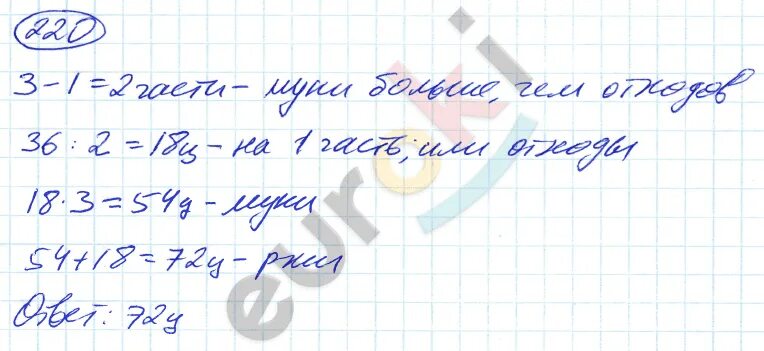 220
3-1=2 части - муки больше, чем отходов
36:2=18ц - на 1 часть, или отходы
18·3=54ц - муки
54+18=72ц - ржи
Ответ: 72ц
euroki